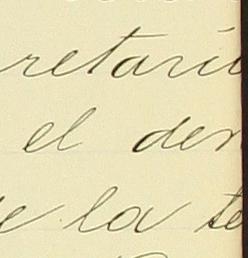 retari
el der
e la te